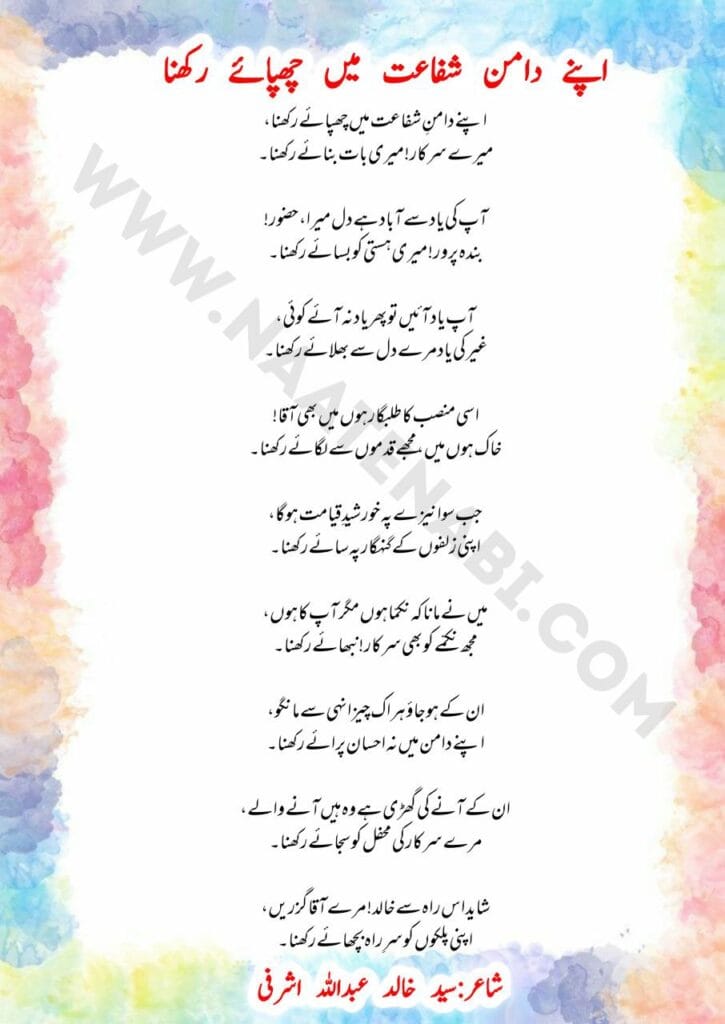 اپنے دامن شفاعت میں چھپائے رکھنا
اپنے دامنِ شفاعت میں چھپائے رکھنا،
میرے سرکار! میری بات بنائے رکھنا۔
آپ کی یاد سے آباد ہے دل میرا، حضور!
بندہ پرور! میری ہستی کو بسائے رکھنا۔
آپ یاد آئیں تو پھر یاد نہ آئے کوئی،
غیر کی یاد مرے دل سے بھلائے رکھنا۔
اسی منصب کا طلبگار ہوں میں بھی آقا!
خاک ہوں میں، مجھے قدموں سے لگائے رکھنا۔
جب سوا نیزے پہ خورشیدِ قیامت ہوگا،
اپنی زلفوں کے گنہگار پہ سائے رکھنا۔
میں نے مانا کہ نکما ہوں مگر آپ کا ہوں،
مجھ نکمّے کو بھی سرکار! نبھائے رکھنا۔
ان کے ہو جاؤ ہر اک چیز انہی سے مانگو،
اپنے دامن میں نہ احسان پرائے رکھنا۔
ان کے آنے کی گھڑی ہے وہ ہیں آنے والے،
مرے سرکار کی محفل کو سجائے رکھنا۔
شاید اس راہ سے خالد! مرے آقا گزریں،
اپنی پلکوں کو سرِ راہ بچھائے رکھنا۔
شاعر: سید خالد عبداللہ اشرفی
WWW.NAATENABI.COM